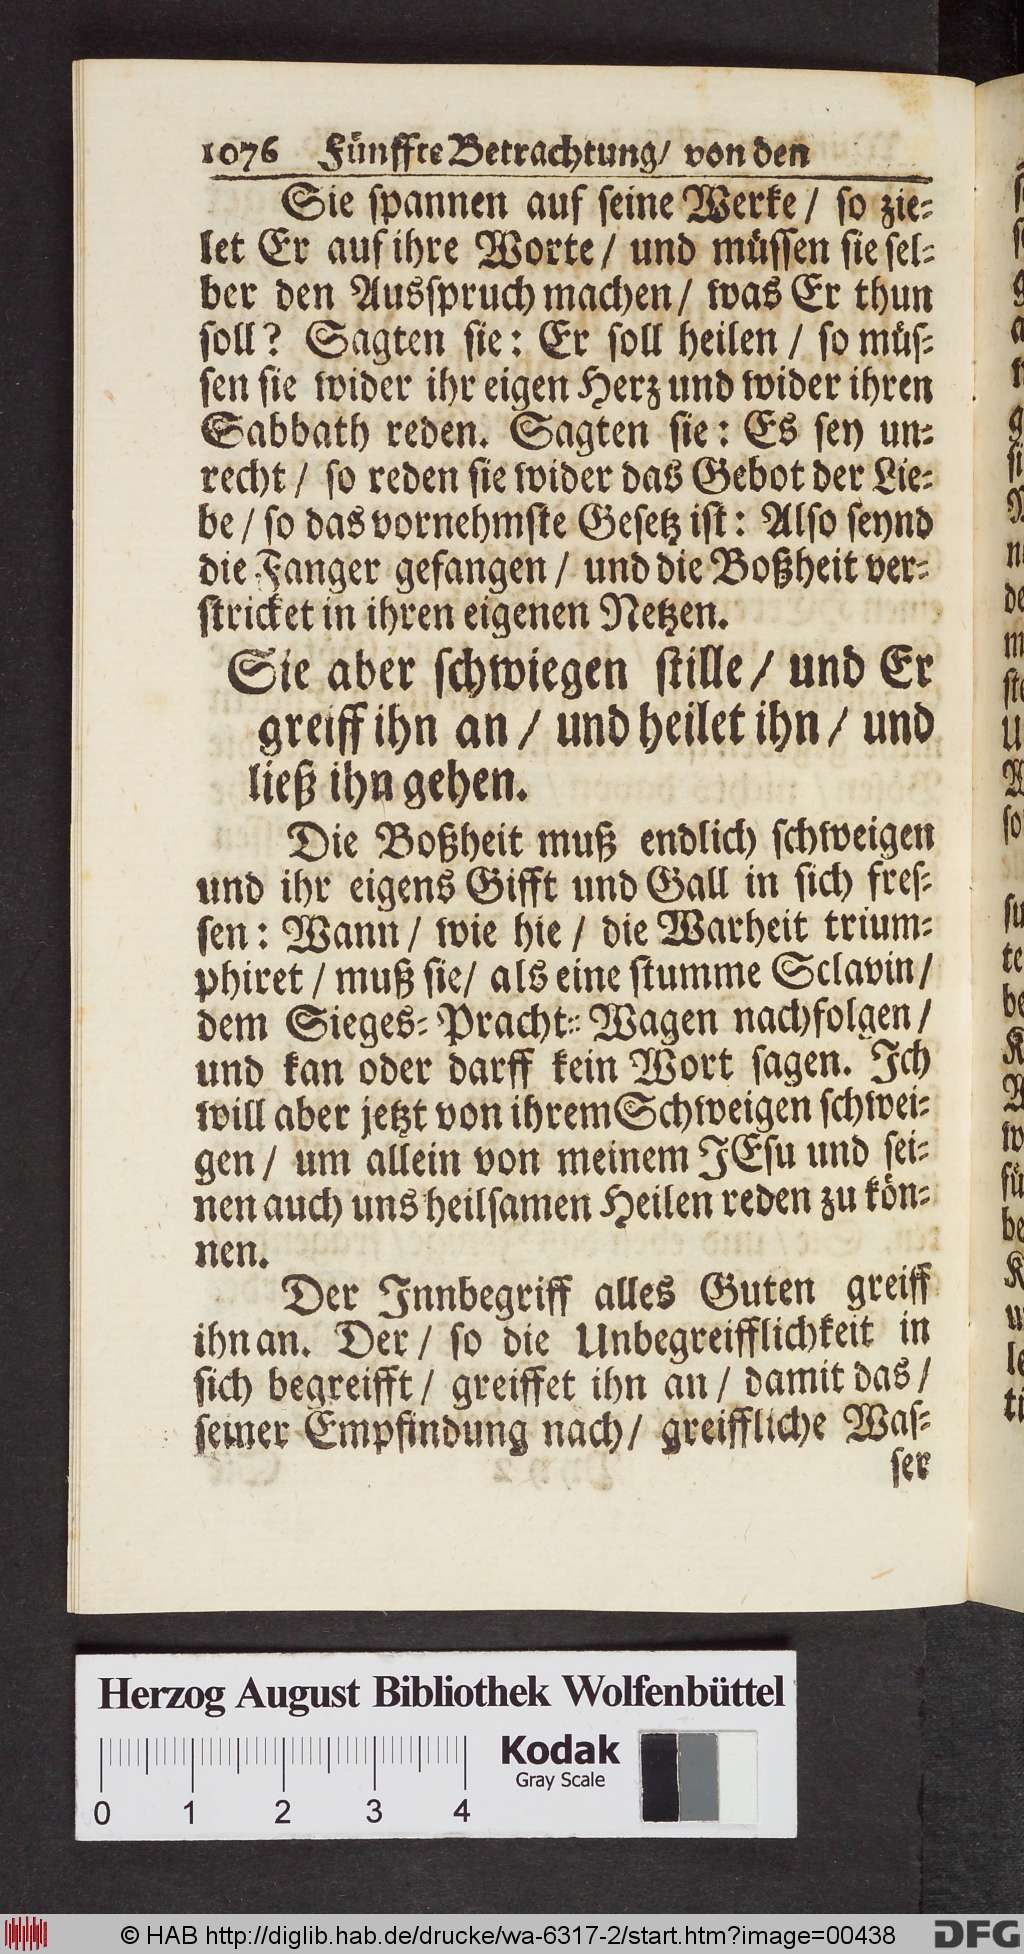 1076 Fünffte Betrachtung/ von den
Sie spannen auf seine Werke / so zie-
let Er auf ihre Worte / und müssen sie sel-
ber den Ausspruch machen / was Er thun
soll? Sagten sie: Er soll heilen / so müs-
sen sie wider ihr eigen Herz und wider ihren
Sabbath reden. Sagten sie: Es sey un-
recht / so reden sie wider das Gebot der Lie-
be / so das vornehmste Gesetz ist: Also seynd
die Fanger gefangen / und die Boßheit ver-
stricket in ihren eigenen Netzen.
Sie aber schwiegen stille / und Er
greiff ihn an / und heilet ihn / und
ließ ihn gehen.
Die Boßheit muß endlich schweigen
und ihr eigens Gifft und Gall in sich fres-
sen: Wann / wie hie / die Warheit trium-
phiret / muß sie / als eine stumme Sclavin /
dem Sieges-Pracht-Wagen nachfolgen /
und kan oder darff kein Wort sagen. Ich
will aber jetzt von ihrem Schweigen schwei-
gen / um allein von meinem JEsu und sei-
nen auch uns heilsamen Heilen reden zu kön-
nen.
Der Innbegriff alles Guten greiff
ihn an. Der / so die Unbegreifflichkeit in
sich begreifft / greiffet ihn an / damit das /
seiner Empfindung nach / greiffliche Was-
ser
Herzog August Bibliothek Wolfenbüttel
Kodak
Gray Scale
0 1 2 3 4
© HAB http://diglib.hab.de/drucke/wa-6317-2/start.htm?image=00438
DFG